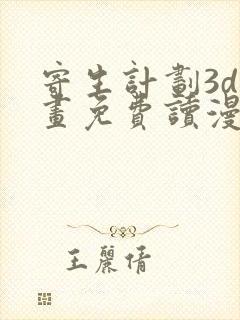 寄生計劃3d
畫免費讀漫
王麗倩